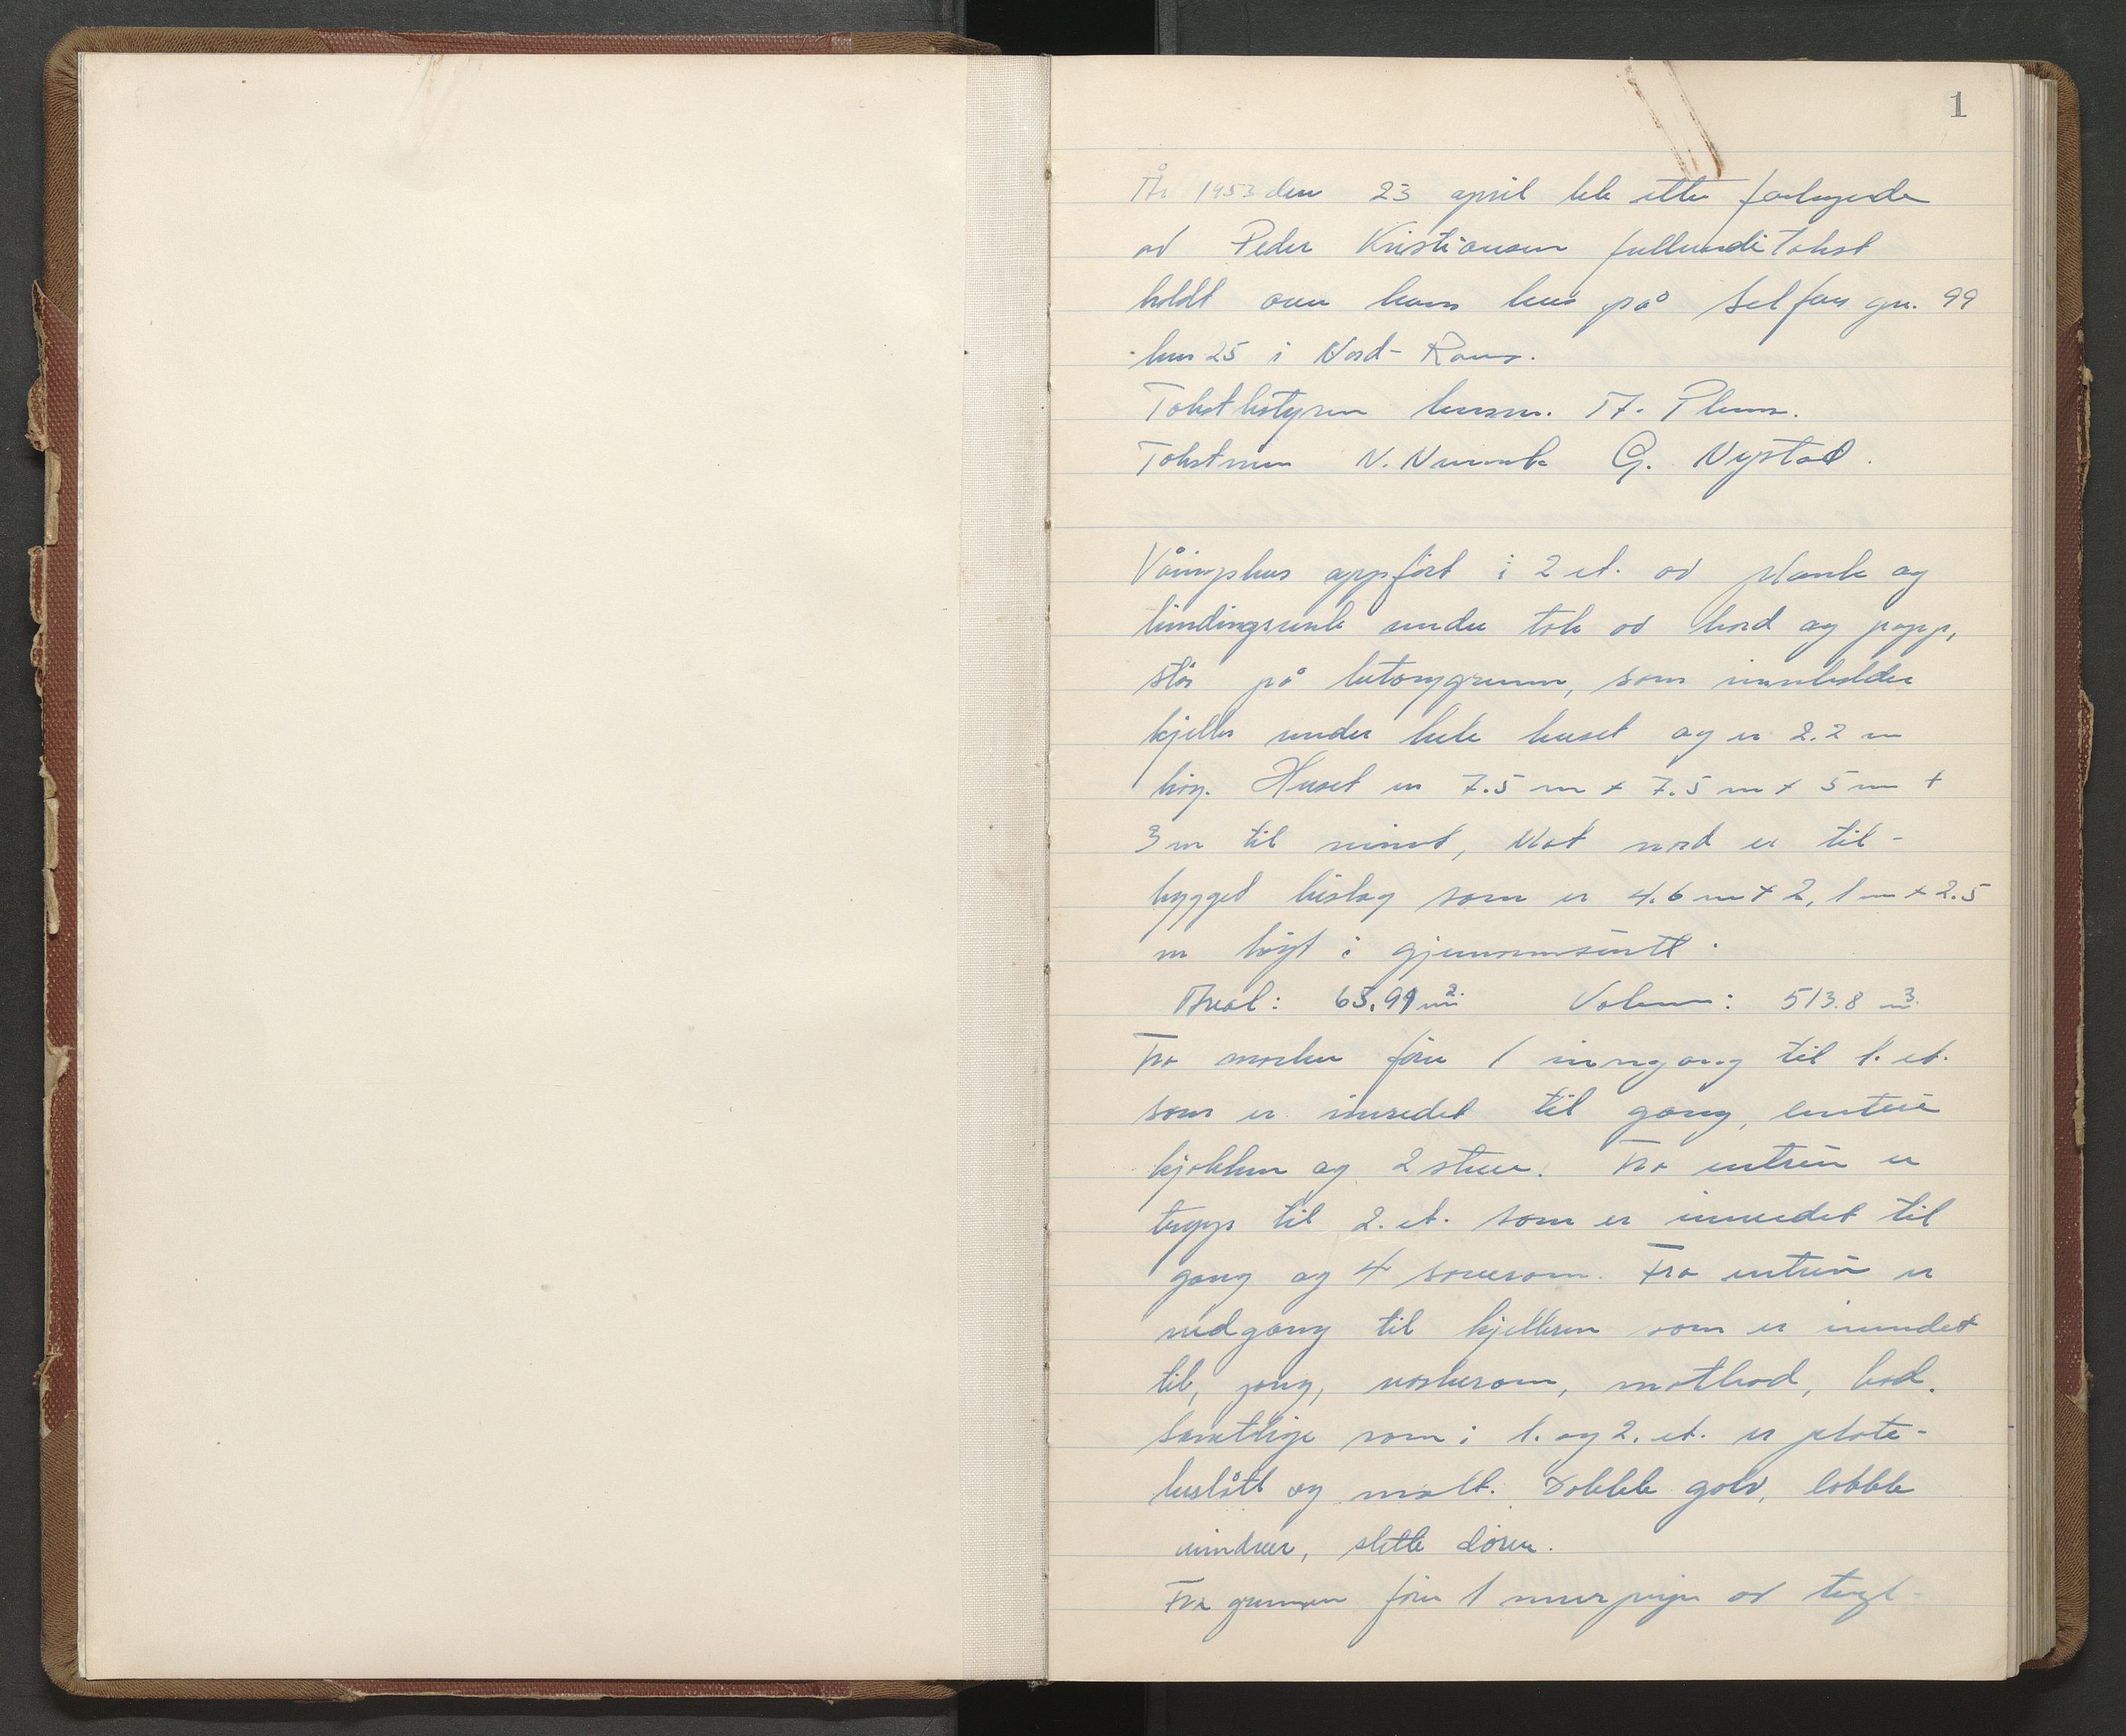 1
År 1953 den 23 april ble etter forlangende
av Peder Kristiansen fullverditakst
holdt over hans hus på Selfors gn. 99
bnr 25 i Nord-Rana.
Takstbestyrer lensm. A. Plum.
Takstmen N. Nevernes G. Nystad.
Våningshus oppført i 2 et. av plank og
bindingsverk under tak av bord og papp,
står på betongrunn, som inneholder
kjeller under hele huset og er 2.2 m
høg. Huset er 7.5 m x 7.5 m x 5 m +
3 m til mønet, Mot nord er til-
bygget bislag som er 4.6 m x 2,1 m x 2.5
m høgt i gjennomsnitt.
Areal: 65,91 m2. Volum: 513.8 m3.
Fra marken fører 1 inngang til 1. et.
som er innredet til gang, entrè
kjøkken og 2 stuer. Fra entrèn er
trapp til 2. et. som er innredet til
gang og 4 soverom. Fra entrèn er
nedgang til kjelleren som er innredet
til, gang, vaskerom, matbod, bod.
Samtlige rom i 1. og 2. et. er plate-
beslått og malt. Dobble golv, dobble
vinduer, slette dører.
Fra grunnen fører 1 murpipe av tegl-